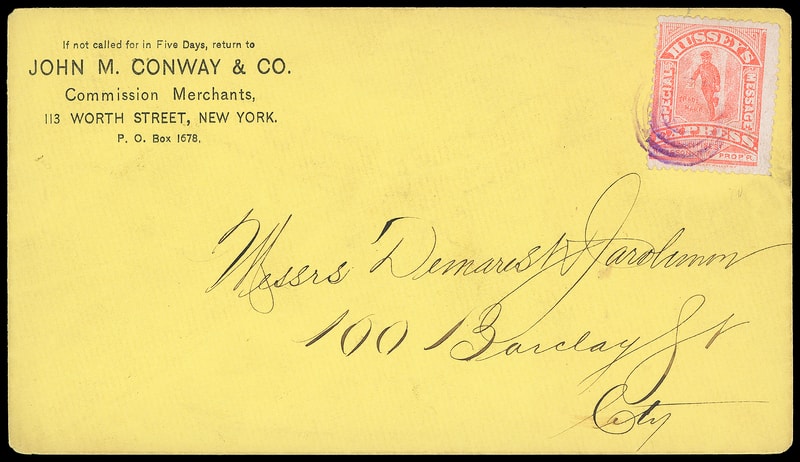 If not called for in Five Days, return to
JOHN M. CONWAY & CO.
Commission Merchants,
113 WORTH STREET, NEW YORK.
P. O. Box 1678.
HUSSEY'S
SPECIAL
MESSAGE
EXPRESS
PROP'R
Messrs Demarest & Jarolimon
100 Barclay St
City